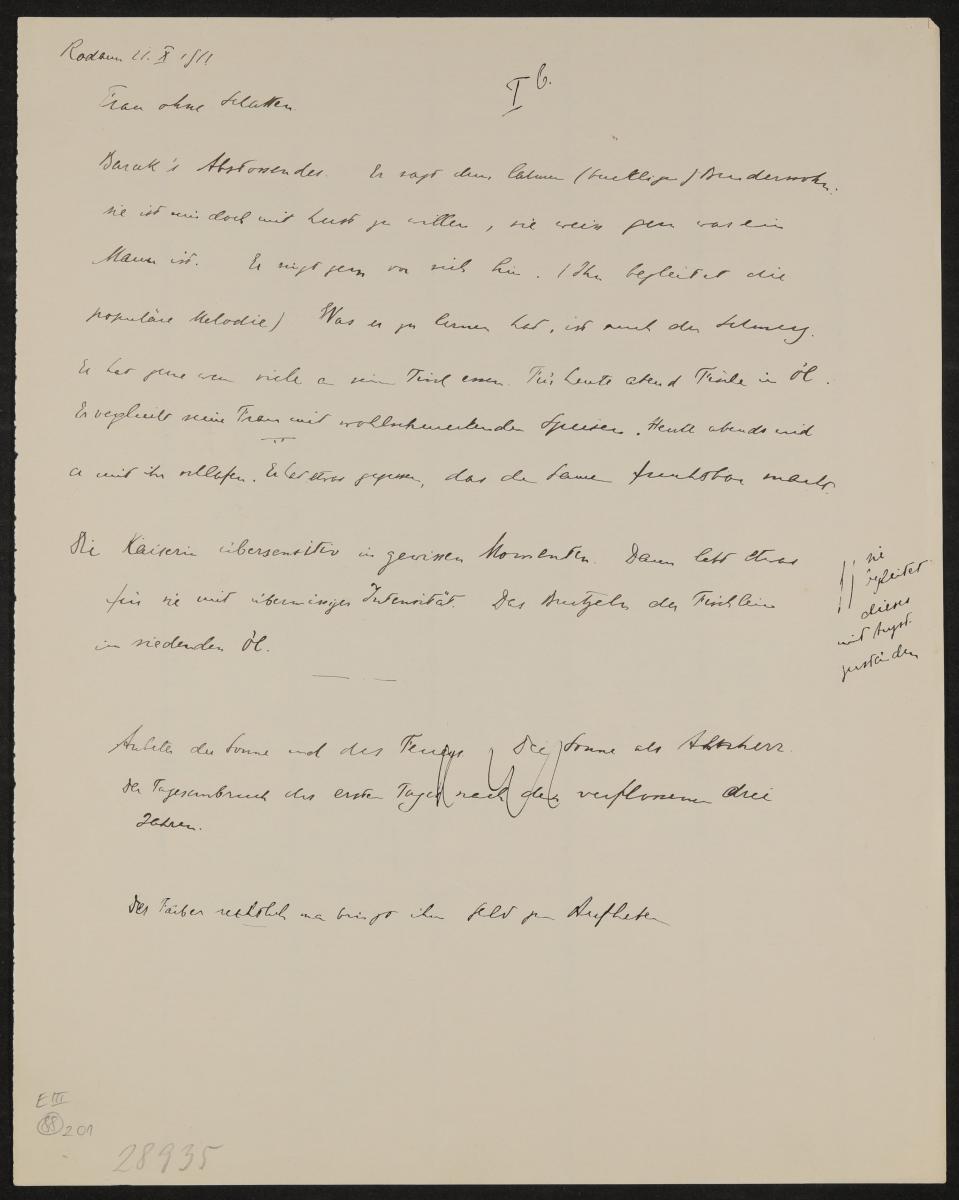 Rodaun 21. X 1911
I b.
Frau ohne Schatten
Barak's Abstossendes. Er sagt dem lahmen (buckligen) Brudersohn:
sie ist mir doch mit Lust zu willen, sie weiss gern was ein
Mann ist. Er singt gern vor sich hin. (Ihn begleitet die
populäre Melodie) Was er zu lernen hat, ist auch der Schmerz.
Er hat gerne wenn viele an seinem Tisch essen. Für heute abend Fische in Öl.
Er vergleicht seine Frau mit wohlschmeckenden Speisen. Heute abends wird
er mit ihr schlafen. Er hat etwas gegessen, das den Samen fruchtbar macht.
Die Kaiserin übersensitiv in gewissen Momenten. Dann lebt etwas
für sie mit übermässiger Intensität. Das Brutzeln der Fischlein
im siedenden Öl.
sie
begleitet
dieses
mit Angst-
zuständen
Anbeter der Sonne und des Feuers Die Sonne als
Der Tagesanbruch des ersten Tages nach den verflossenen drei
Jahren.
Des Färber man bringt ihm Geld zum Aufheben
E III
88 201
28935